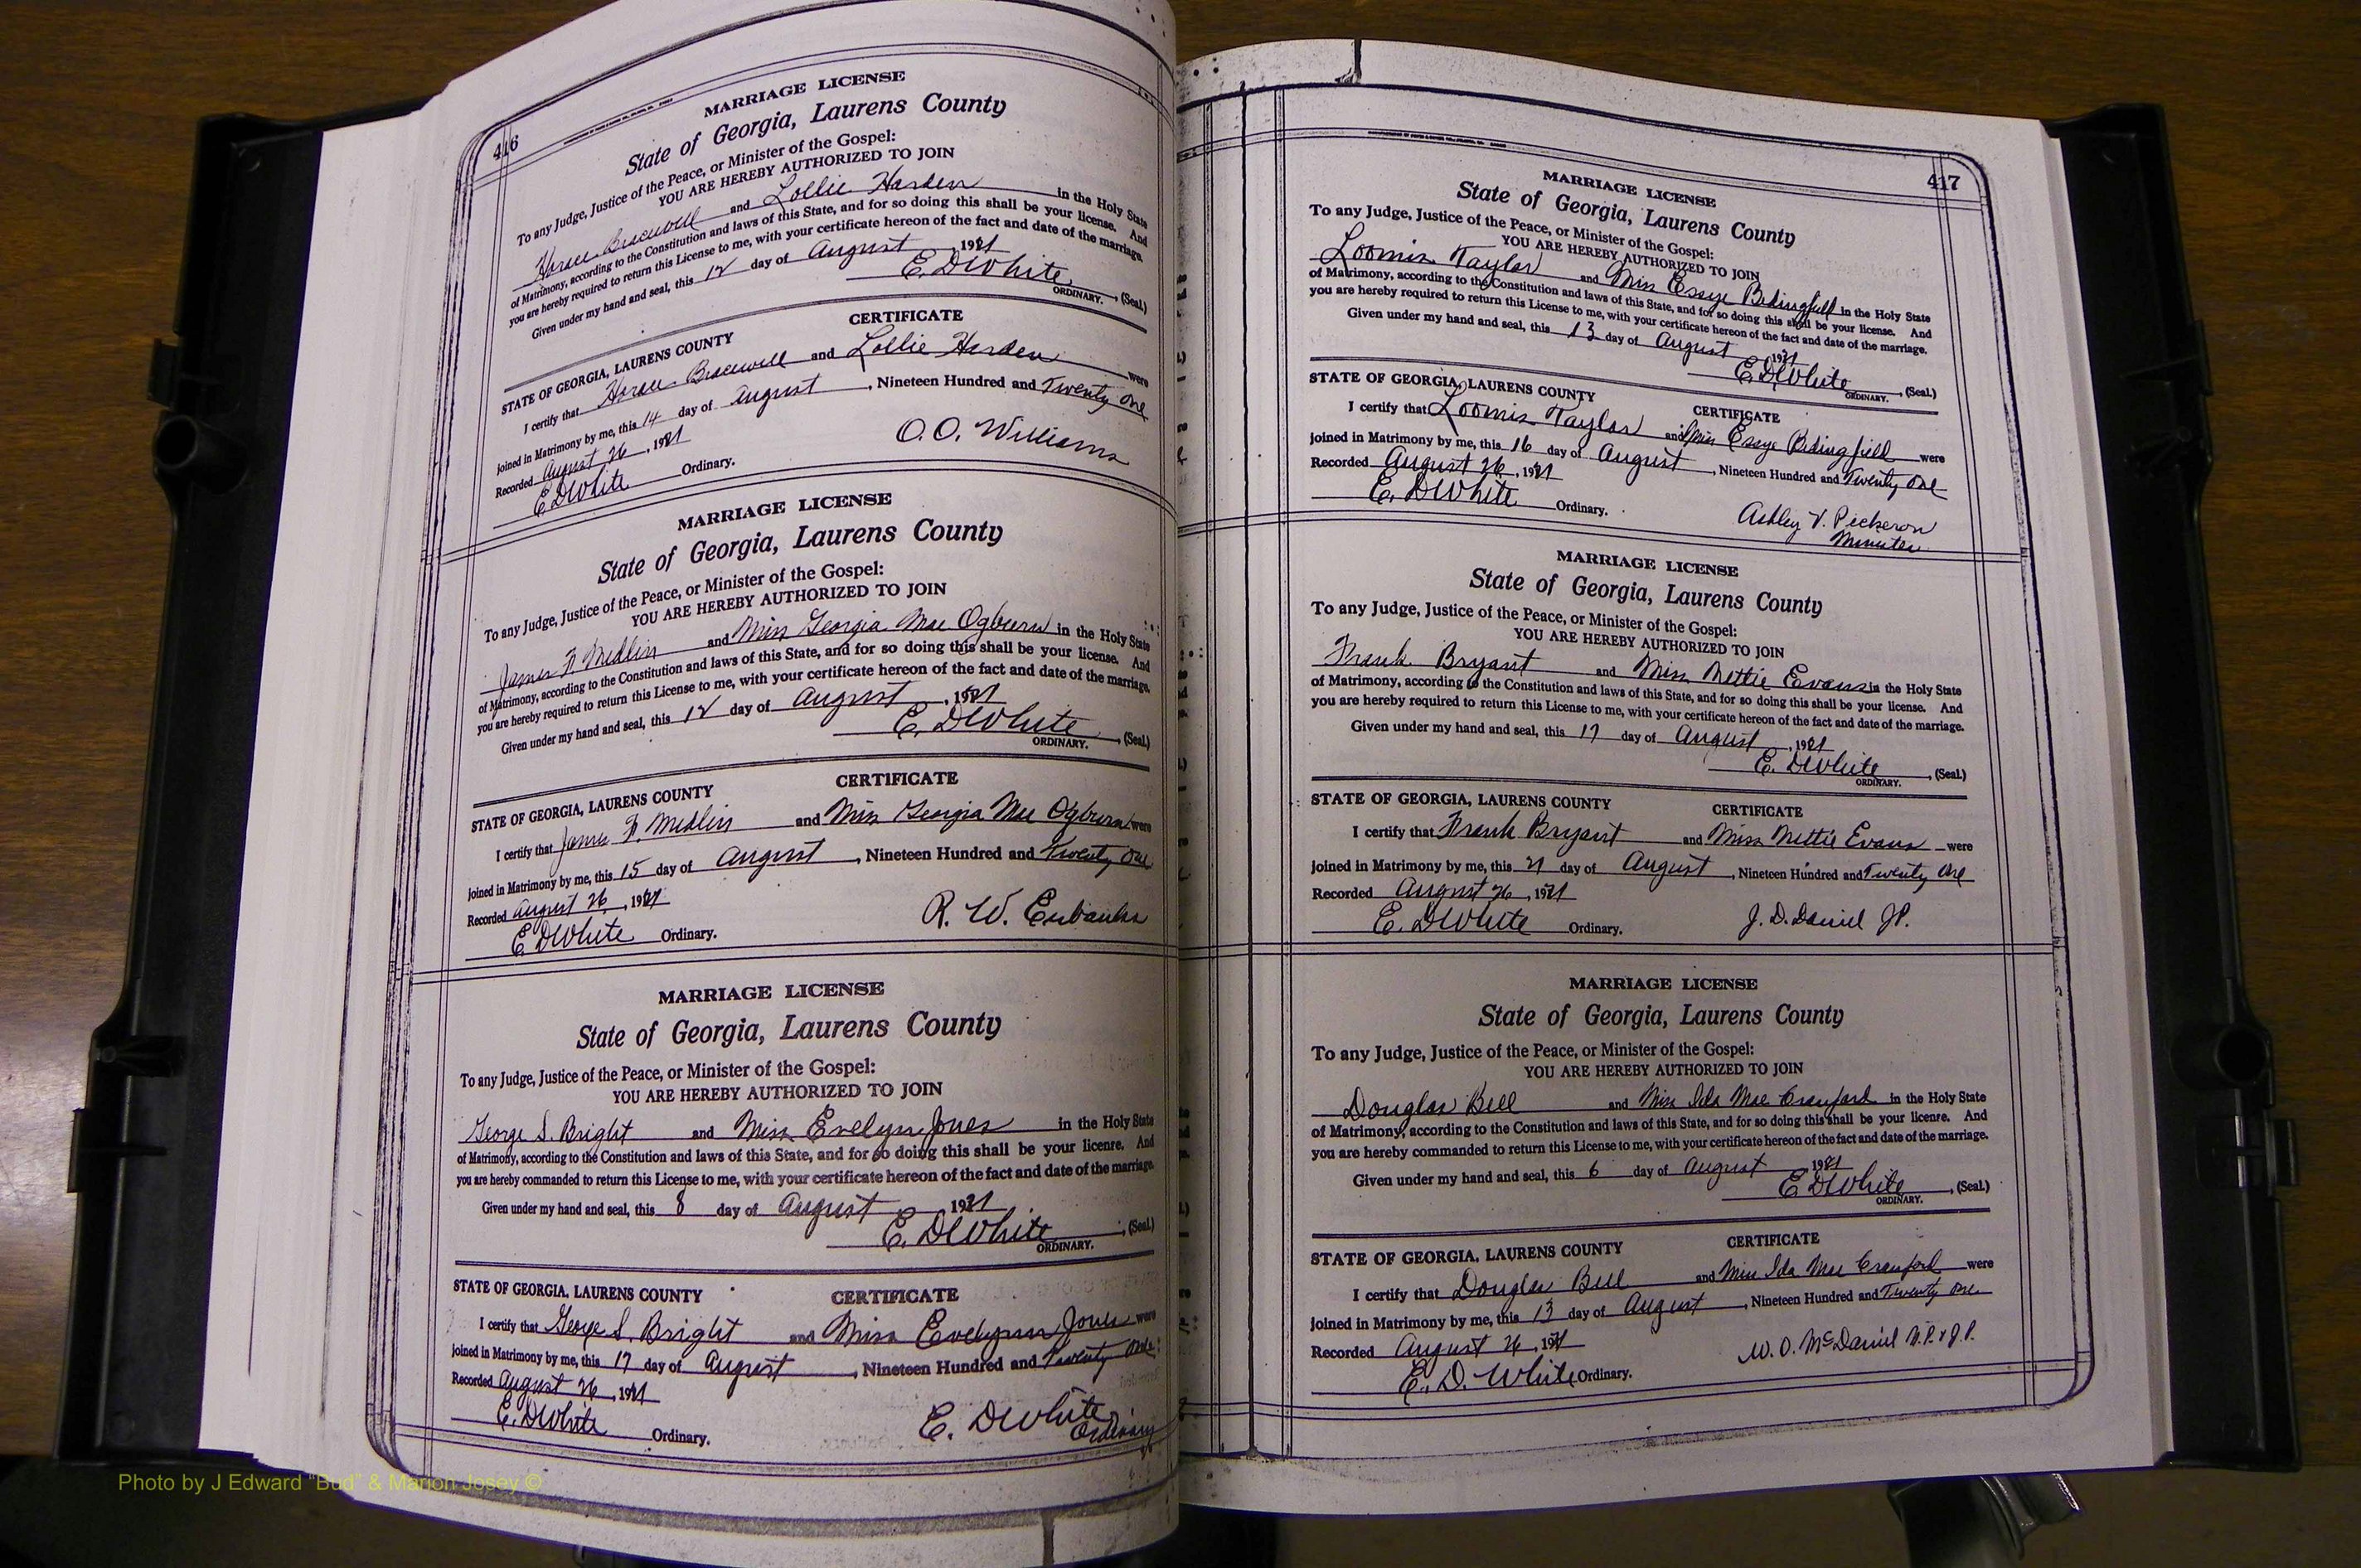 416
MARRIAGE LICENSE
State of Georgia, Laurens County
To any Judge, Justice of the Peace, or Minister of the Gospel:
YOU ARE HEREBY AUTHORIZED TO JOIN
Horace Bracewell and Lollie Harden in the Holy State
of Matrimony, according to the Constitution and laws of this State, and for so doing this shall be your license. And
you are hereby required to return this License to me, with your certificate hereon of the fact and date of the marriage.
Given under my hand and seal, this 12 day of August, 1921
E. D White (Seal.)
ORDINARY.
CERTIFICATE
STATE OF GEORGIA, LAURENS COUNTY
I certify that Horace Bracewell and Lollie Harden were
joined in Matrimony by me, this 14 day of August, Nineteen Hundred and Twenty One
Recorded August 26, 1921
O. O. Williams
E. D White Ordinary.
MARRIAGE LICENSE
State of Georgia, Laurens County
To any Judge, Justice of the Peace, or Minister of the Gospel:
YOU ARE HEREBY AUTHORIZED TO JOIN
James F. Medlin and Miss Georgia Mae Ogburn in the Holy State
of Matrimony, according to the Constitution and laws of this State, and for so doing this shall be your license. And
you are hereby required to return this License to me, with your certificate hereon of the fact and date of the marriage.
Given under my hand and seal, this 12 day of August, 1921
E. D White (Seal.)
ORDINARY.
CERTIFICATE
STATE OF GEORGIA, LAURENS COUNTY
I certify that James F. Medlin and Miss Georgia Mae Ogburn were
joined in Matrimony by me, this 15 day of August, Nineteen Hundred and Twenty One
Recorded August 26, 1921
R. W. Eubanks
E. D White Ordinary.
MARRIAGE LICENSE
State of Georgia, Laurens County
To any Judge, Justice of the Peace, or Minister of the Gospel:
YOU ARE HEREBY AUTHORIZED TO JOIN
George S. Bright and Miss Evelyn Jones in the Holy State
of Matrimony, according to the Constitution and laws of this State, and for so doing this shall be your license. And
you are hereby commanded to return this License to me, with your certificate hereon of the fact and date of the marriage.
Given under my hand and seal, this 8 day of August 1921
E. D White, (Seal.)
ORDINARY.
STATE OF GEORGIA, LAURENS COUNTY CERTIFICATE
I certify that George S. Bright and Miss Evelynn Jones were
joined in Matrimony by me, this 17 day of August, Nineteen Hundred and Twenty One
Recorded August 26, 1921
E. D White Ordinary.
E. D White
Ordinary
417
MARRIAGE LICENSE
State of Georgia, Laurens County
To any Judge, Justice of the Peace, or Minister of the Gospel:
YOU ARE HEREBY AUTHORIZED TO JOIN
Loomis Taylor and Miss Essye Bedingfield in the Holy State
of Matrimony, according to the Constitution and laws of this State, and for so doing this shall be your license. And
you are hereby required to return this License to me, with your certificate hereon of the fact and date of the marriage.
Given under my hand and seal, this 13 day of August 1921
E. D White, (Seal.)
ORDINARY.
STATE OF GEORGIA, LAURENS COUNTY
CERTIFICATE
I certify that Loomis Taylor and Miss Essye Bedingfield were
joined in Matrimony by me, this 16 day of August, Nineteen Hundred and Twenty One
Recorded August 26, 1921
E. D White Ordinary.
Ashley V. Pickeron
Minister
MARRIAGE LICENSE
State of Georgia, Laurens County
To any Judge, Justice of the Peace, or Minister of the Gospel:
YOU ARE HEREBY AUTHORIZED TO JOIN
Frank Bryant and Miss Nettie Evans in the Holy State
of Matrimony, according to the Constitution and laws of this State, and for so doing this shall be your license. And
you are hereby required to return this License to me, with your certificate hereon of the fact and date of the marriage.
Given under my hand and seal, this 17 day of August, 1921
E. D White, (Seal.)
ORDINARY.
STATE OF GEORGIA, LAURENS COUNTY CERTIFICATE
I certify that Frank Bryant and Miss Nettie Evans were
joined in Matrimony by me, this 21 day of August, Nineteen Hundred and Twenty One
Recorded August 26, 1921
E. D White Ordinary.
J. D. Daniel JP.
MARRIAGE LICENSE
State of Georgia, Laurens County
To any Judge, Justice of the Peace, or Minister of the Gospel:
YOU ARE HEREBY AUTHORIZED TO JOIN
Douglas Bell and Miss Ida Mae Cranford in the Holy State
of Matrimony, according to the Constitution and laws of this State, and for so doing this shall be your license. And
you are hereby commanded to return this License to me, with your certificate hereon of the fact and date of the marriage.
Given under my hand and seal, this 6 day of August, 1921
E. D White, (Seal.)
ORDINARY.
STATE OF GEORGIA, LAURENS COUNTY CERTIFICATE
I certify that Douglas Bell and Miss Ida Mae Cranford were
joined in Matrimony by me, this 13 day of August, Nineteen Hundred and Twenty One
Recorded August 26, 1921
W. O. McDaniel N.P. & J.P.
E. D. White Ordinary.
Photo by J Edward "Bud" & Marion Josey ©